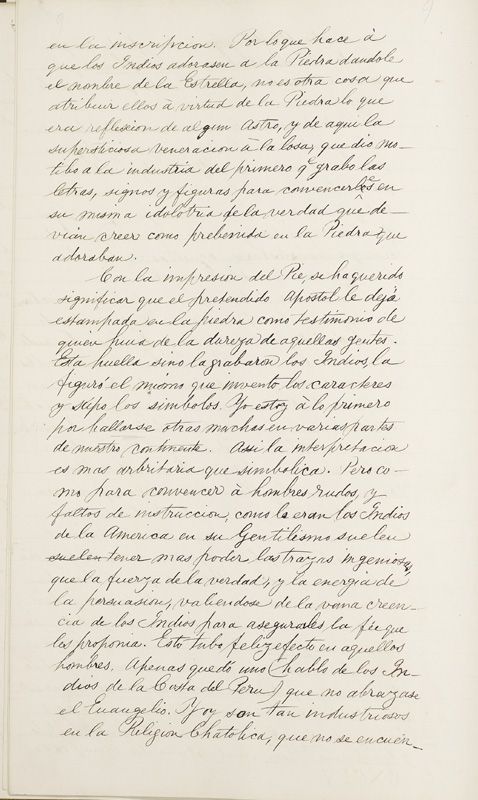 en la inscripcion. Por lo que hace à
que los Indios adorasen a la Piedra dandole
el nombre de la Estrella, no es otra cosa que
atribuir ellos à virtud de la Piedra lo que
era reflexion de algun Astro, y de aqui la
supersticiosa veneracion a la losa, que dio mo-
tibo a la industria del primero qe grabo las
letras, signos y figuras para convencerlos en
su misma idolotria de la verdad que de-
vian creer como prebenida en la Piedra que
adoraban.
Con la impresion del Pie, se ha querido
significar que el pretendido Apostol le dejó
estampada en la piedra como testimonio de
quien huia de la dureza de aquellas gentes.
Esta huella sino la grabaron los Indios, la
figuró el mismo que invento los caracteres
y stipo los simbolos. Yo estoy à lo primero
por hallarse otras muchas en varias partes
de nuestro continente. Asi la interpretacion
es mas arbritaria que simbolica. Pero co-
mo para convencer à hombres rudos, y
faltos de instruccion, como lo eran los Indios
de la America en su Gentilismo suelen
suelen tener mas poder las trazas ingeniosas
que la fuerza de la verdad, y la energia de
la persuasion, valiendose de la vana creen-
cia de los Indios para asegurales la fée que
les proponia. Esto tubo feliz efecto en aquellos
hombres. Apenas quedó uno (hablo de los In-
dios de la Costa del Peru) que no abrazase
el Euangelio. Y oy son tan industriosos
en la Religion Chatolica, que no se encuen-